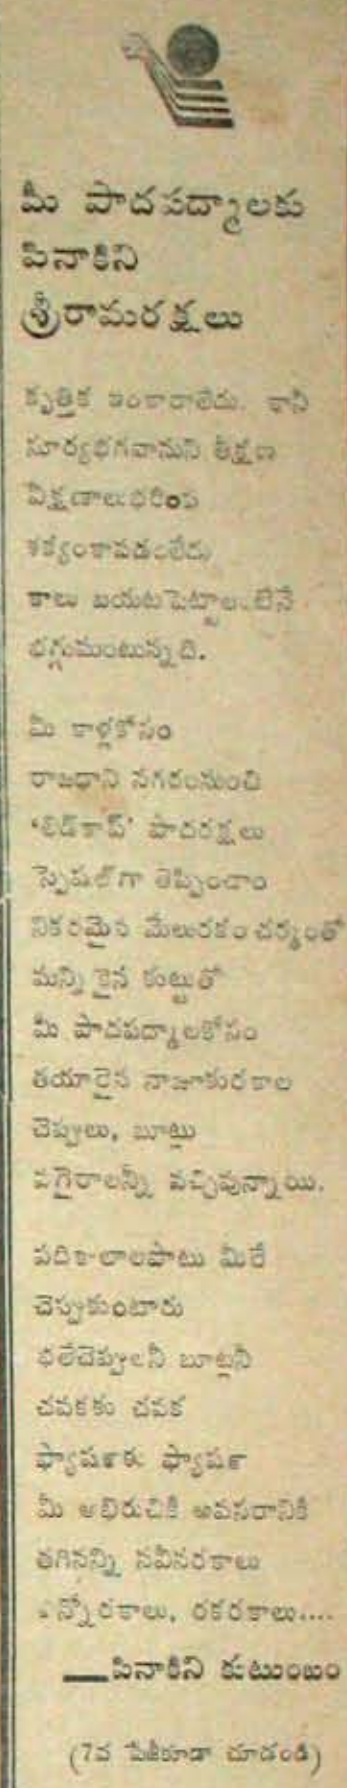 మీ పాదపద్మాలకు
పినాకిని
శ్రీరామరక్షలు
కృత్తిక ఇంకారాలేదు. కానీ
సూర్యభగవానుని తీక్షణ
వీక్షణాలుభరింప
శక్యంకావడంలేదు
కాలు బయటపెట్టాలంటేనే
భగ్గుమంటున్నది.
మీ కాళ్లకోసం
రాజధాని నగరంనుంచి
'లిడ్‌కాప్' పాదరక్షలు
స్పెషల్‌గా తెప్పించాం
నికరమైన మేలురకం చర్మంతో
మన్నికైన కుట్టుతో
మీ పాదపద్మాలకోసం
తయారైన నాజూకురకాల
చెప్పులు, బూట్లు
వగైరాలన్నీ వచ్చివున్నాయి.
పదికాలాలపాటు మీరే
చెప్పుకుంటారు
భలేచెప్పులనీ బూట్లనీ
చవకకు చవక
ఫ్యాషన్‌కు ఫ్యాషన్
మీ అభిరుచికీ అవసరానికీ
తగినన్ని నవీనరకాలు
ఎన్నోరకాలు, రకరకాలు....
—పినాకిని కుటుంబం
(7వ పేజీకూడా చూడండి)